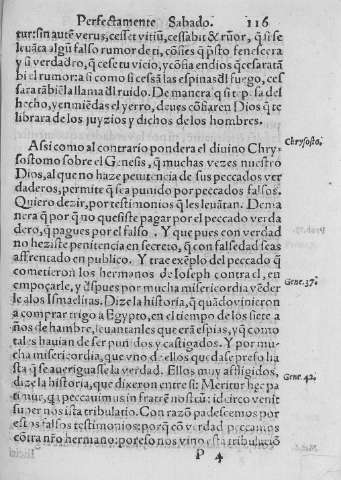 Perfectamente Sabado. 116
tur: sin autē verus, cesset vitiū, cessabit & rūor, q̄ si se
leuāta algū falso rumor de ti, cōfies q̄ p̄sto fenescera
y si verdadro, q̄ cese tu vicio, y cōfia en dios q̄ cesarata
bi el rumor: a si como si cessā las espinas dl fuego, ces
sara tābiē la llama dl ruido. De manera q̄ si te pesa del
hecho, y enmiēdas el yerro, deues cōfiar en Dios q̄ te
librara de los juyzios y dichos de los hombres.
Assi como al contrario pondera el diuino Chry
sostomo sobre el Genesis, q̄ muchas vezes nuestro
Dios, al que no haze penitencia de sus peccados ver
daderos, permite q̄ sea punido por peccados falsos.
Quiero dezir, por testimonios q̄ les leuātan. De ma
nera q̄ por q̄ no quesiste pagar por el peccado verda
dero, q̄ pagues por el falso. Y que pues con verdad
no heziste penitencia en secreto, q̄ con falsedad seas
affrentado en publico. Y trae exēplo del peccado q̄
cometieron los hermanos de Ioseph contra el, en
empoçarle, y dspues por mucha misericordia vēder
le a los Ismaelitas. Dize la historia, q̄ quādo vinieron
a comprar trigo a Egypto, en el tiempo de los siete a
ños de hambre, leuantanles que erā espias, y q̄ como
tales hauian de ser punidos y castigados. Y por mu
cha misericordia, que vno dellos quedase preso ha
sta q̄ se aueriguase la verdad. Ellos muy affligidos,
dize la historia, que dixeron entre si: Merito hec pa
timur, q̄a peccauimus in fratrē nostrū: idcirco venit
super nos ista tribulatio. Con razō padescemos por
estos falsos testimonios: porq̄ cō verdad peccamos
cōtra nr̄o hermano: por eso nos vino esta tribulaciō
P 4
Chrysosto.
Gene. 37.
Gene. 42.